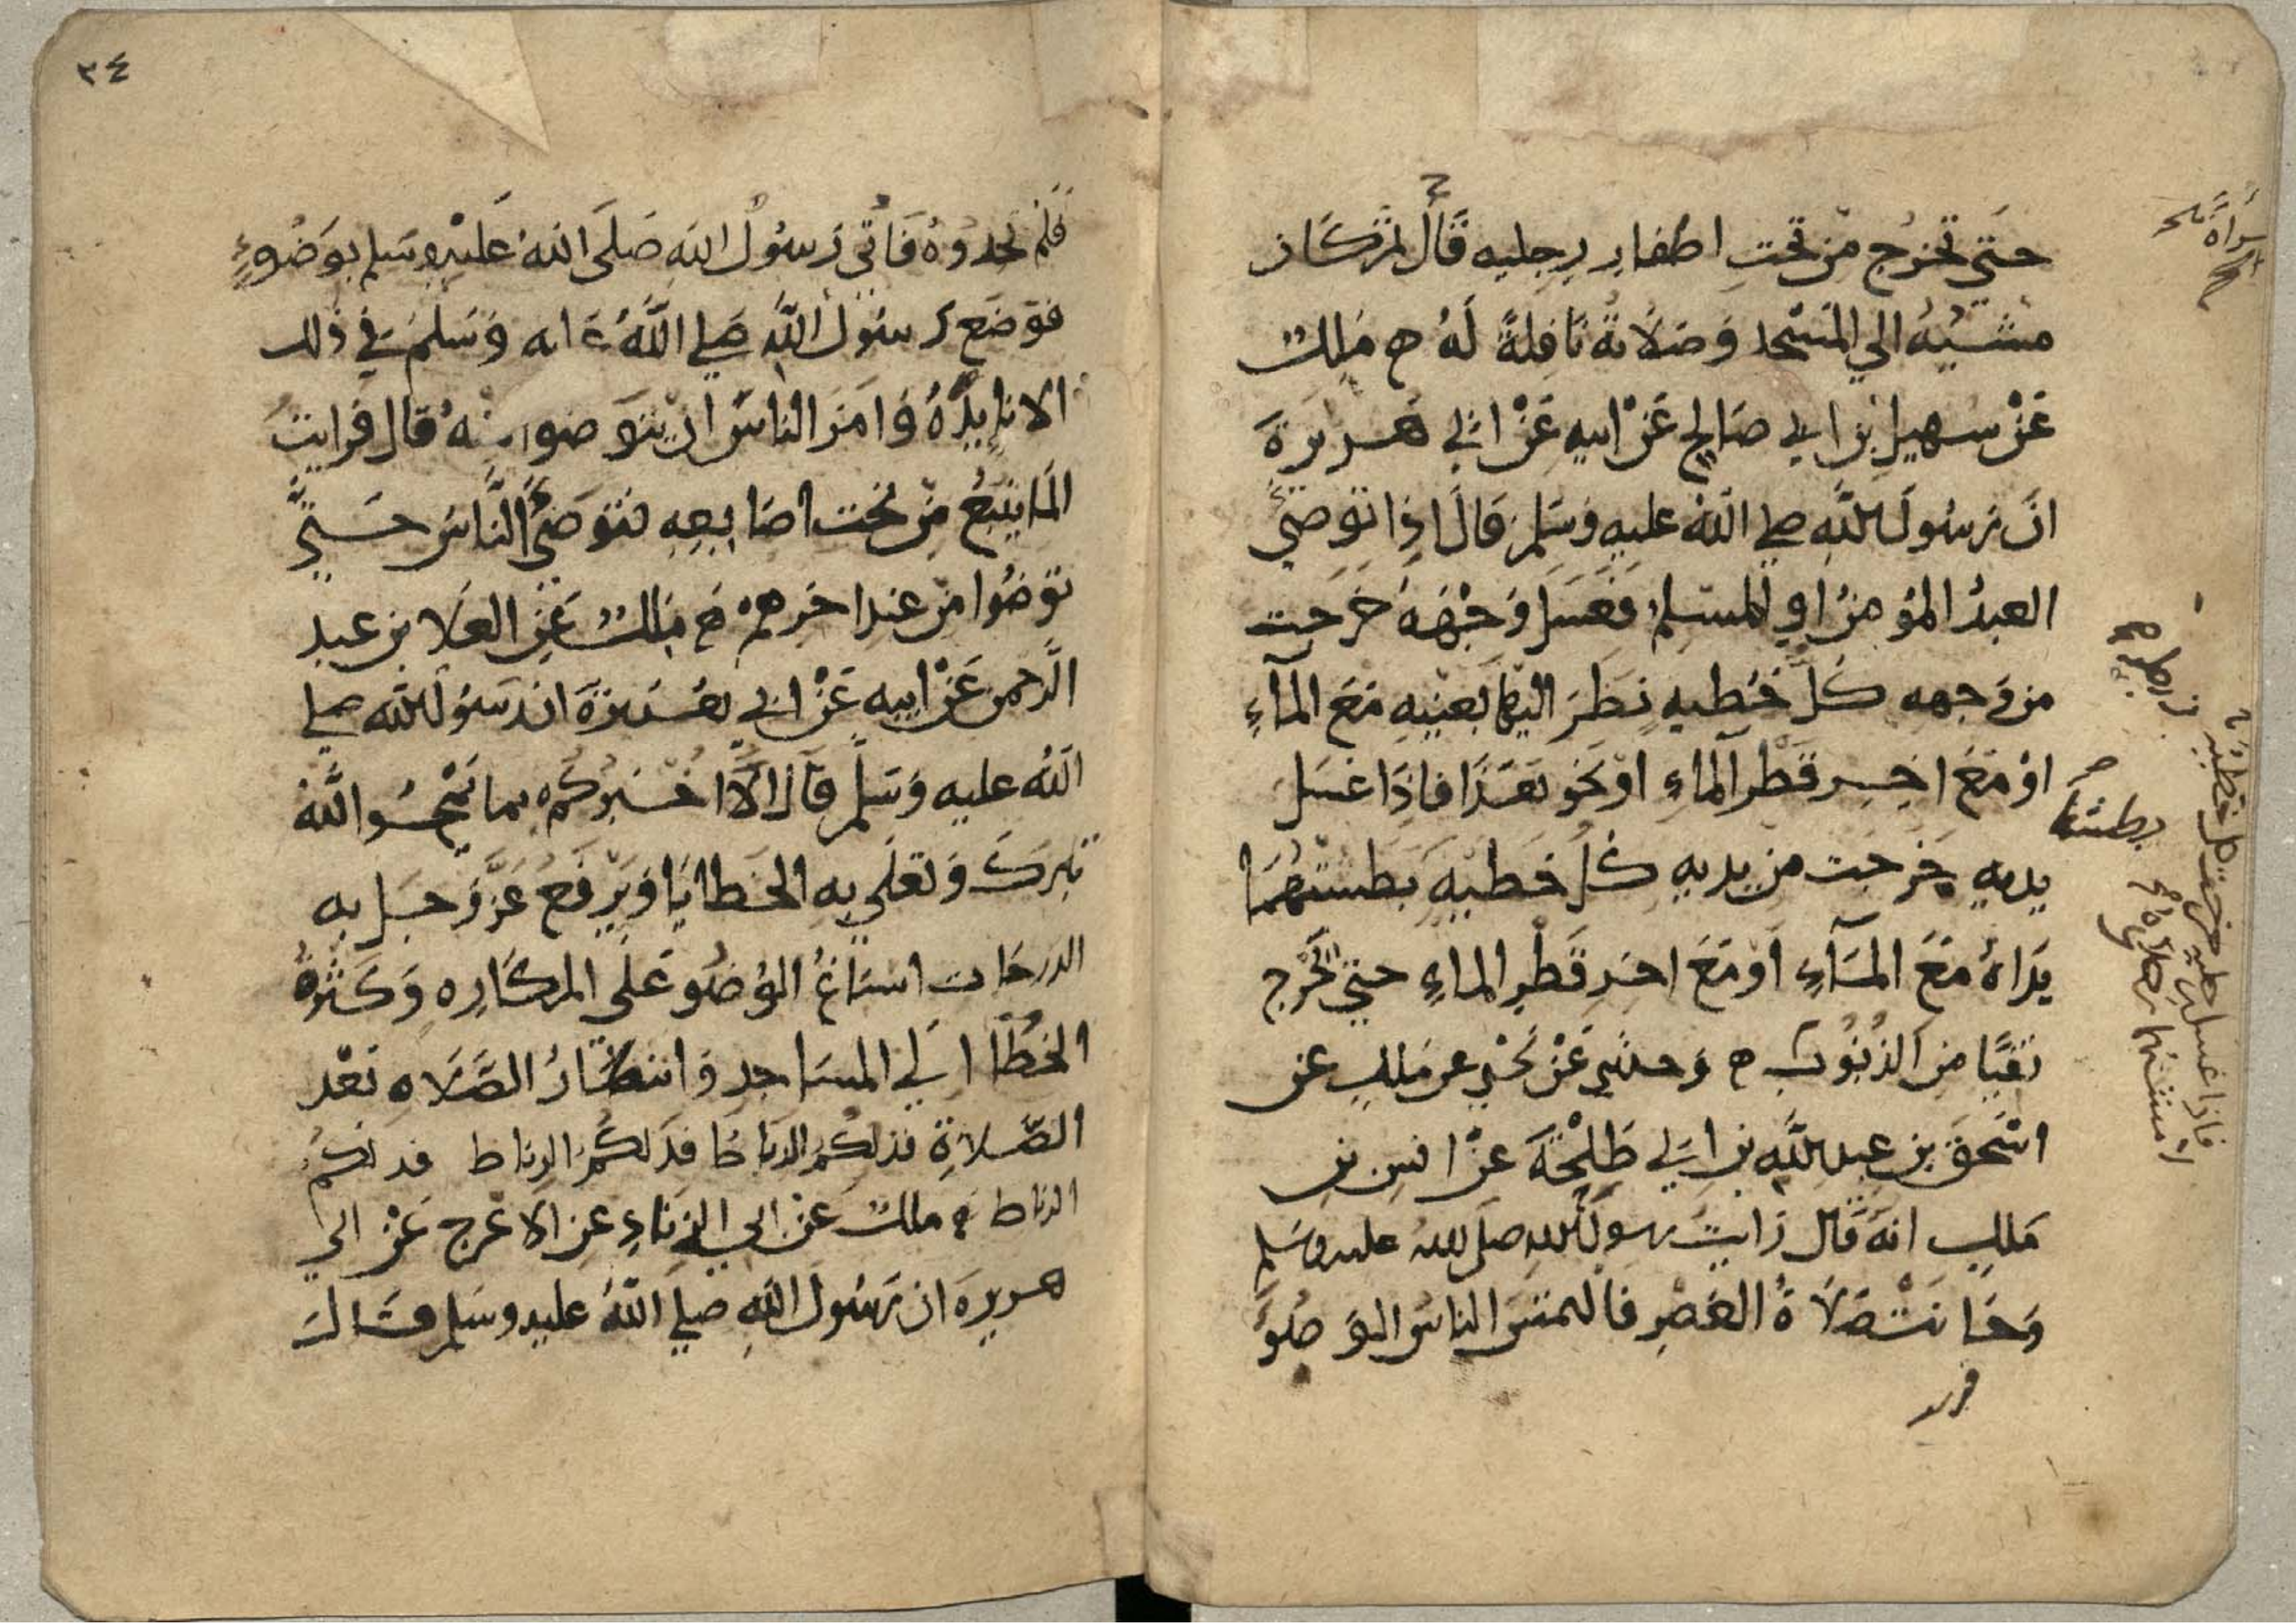 حتي تخرج من تحت اظفار رجليه قال ثم كان
مشيه الي المسجد وصلاته نافلة له ه ملك
عن سهيل بن ابي صالح عن ابيه عن ابي هريرة
ان رسول الله صلي الله عليه وسلم قال اذا توضي
العبد المؤمن او المسلم فغسل وجهه خرجت
من وجهه كل خطيه نظر اليها بعينيه مع الماء
او مع اخر قطر الماء او نحو هذا فاذا غسل
يديه خرجت من يديه كل خطيه بطشتهما
يداه مع الماء او مع اخر قطر الماء حتي يخرج
نقيا من الذنوب ه وحدثني عن يحيي عن ملك عن
اسحق بن عبد الله بن ابي طلحة عن انس بن
ملك انه قال رايت رسول الله صلي الله عليه وسلم
وحانت صلاة العصر فالتمس الناس الوضو
بطشتها
كل خطية
فاذا غسل رجليه خرجت
مشتها رجلاه
٣٤
فلم يجدوه فاتي رسول الله صلي الله عليه وسلم بوضوء
فوضع رسول الله صلي الله عليه وسلم في ذلك
الانا يده وامر الناس ان يتوضوا منه قال فرايت
الما ينبع من تحت اصابعه فتوضئ الناس حتي
توضوا من عند اخرهم ه ملك عن العلا بن عبد
الرحمن عن ابيه عن ابي هريرة ان رسول الله صلي
الله عليه وسلم قال الا اخبركم بما يمحوا الله
تبرك وتعلي به الخطايا ويرفع عز وجل به
الدرجات اسباغ الوضو على المكاره وكثرة
الخطا الي المساجد وانتظار الصلاه بعد
الصلاة فذلكم الرباط فذلكم الرباط فذلكم
الرباط ه ملك عن ابي الزناد عن الاعرج عن ابي
هريرة ان رسول الله صلي الله عليه وسلم قال